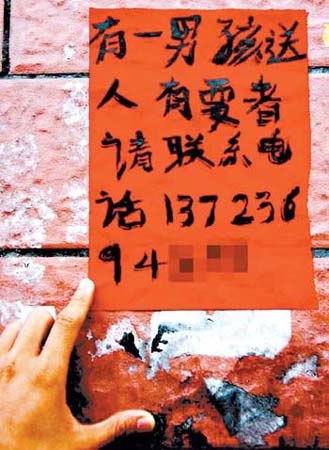 有一男孩送
人有要者
请联系电
话137236
94